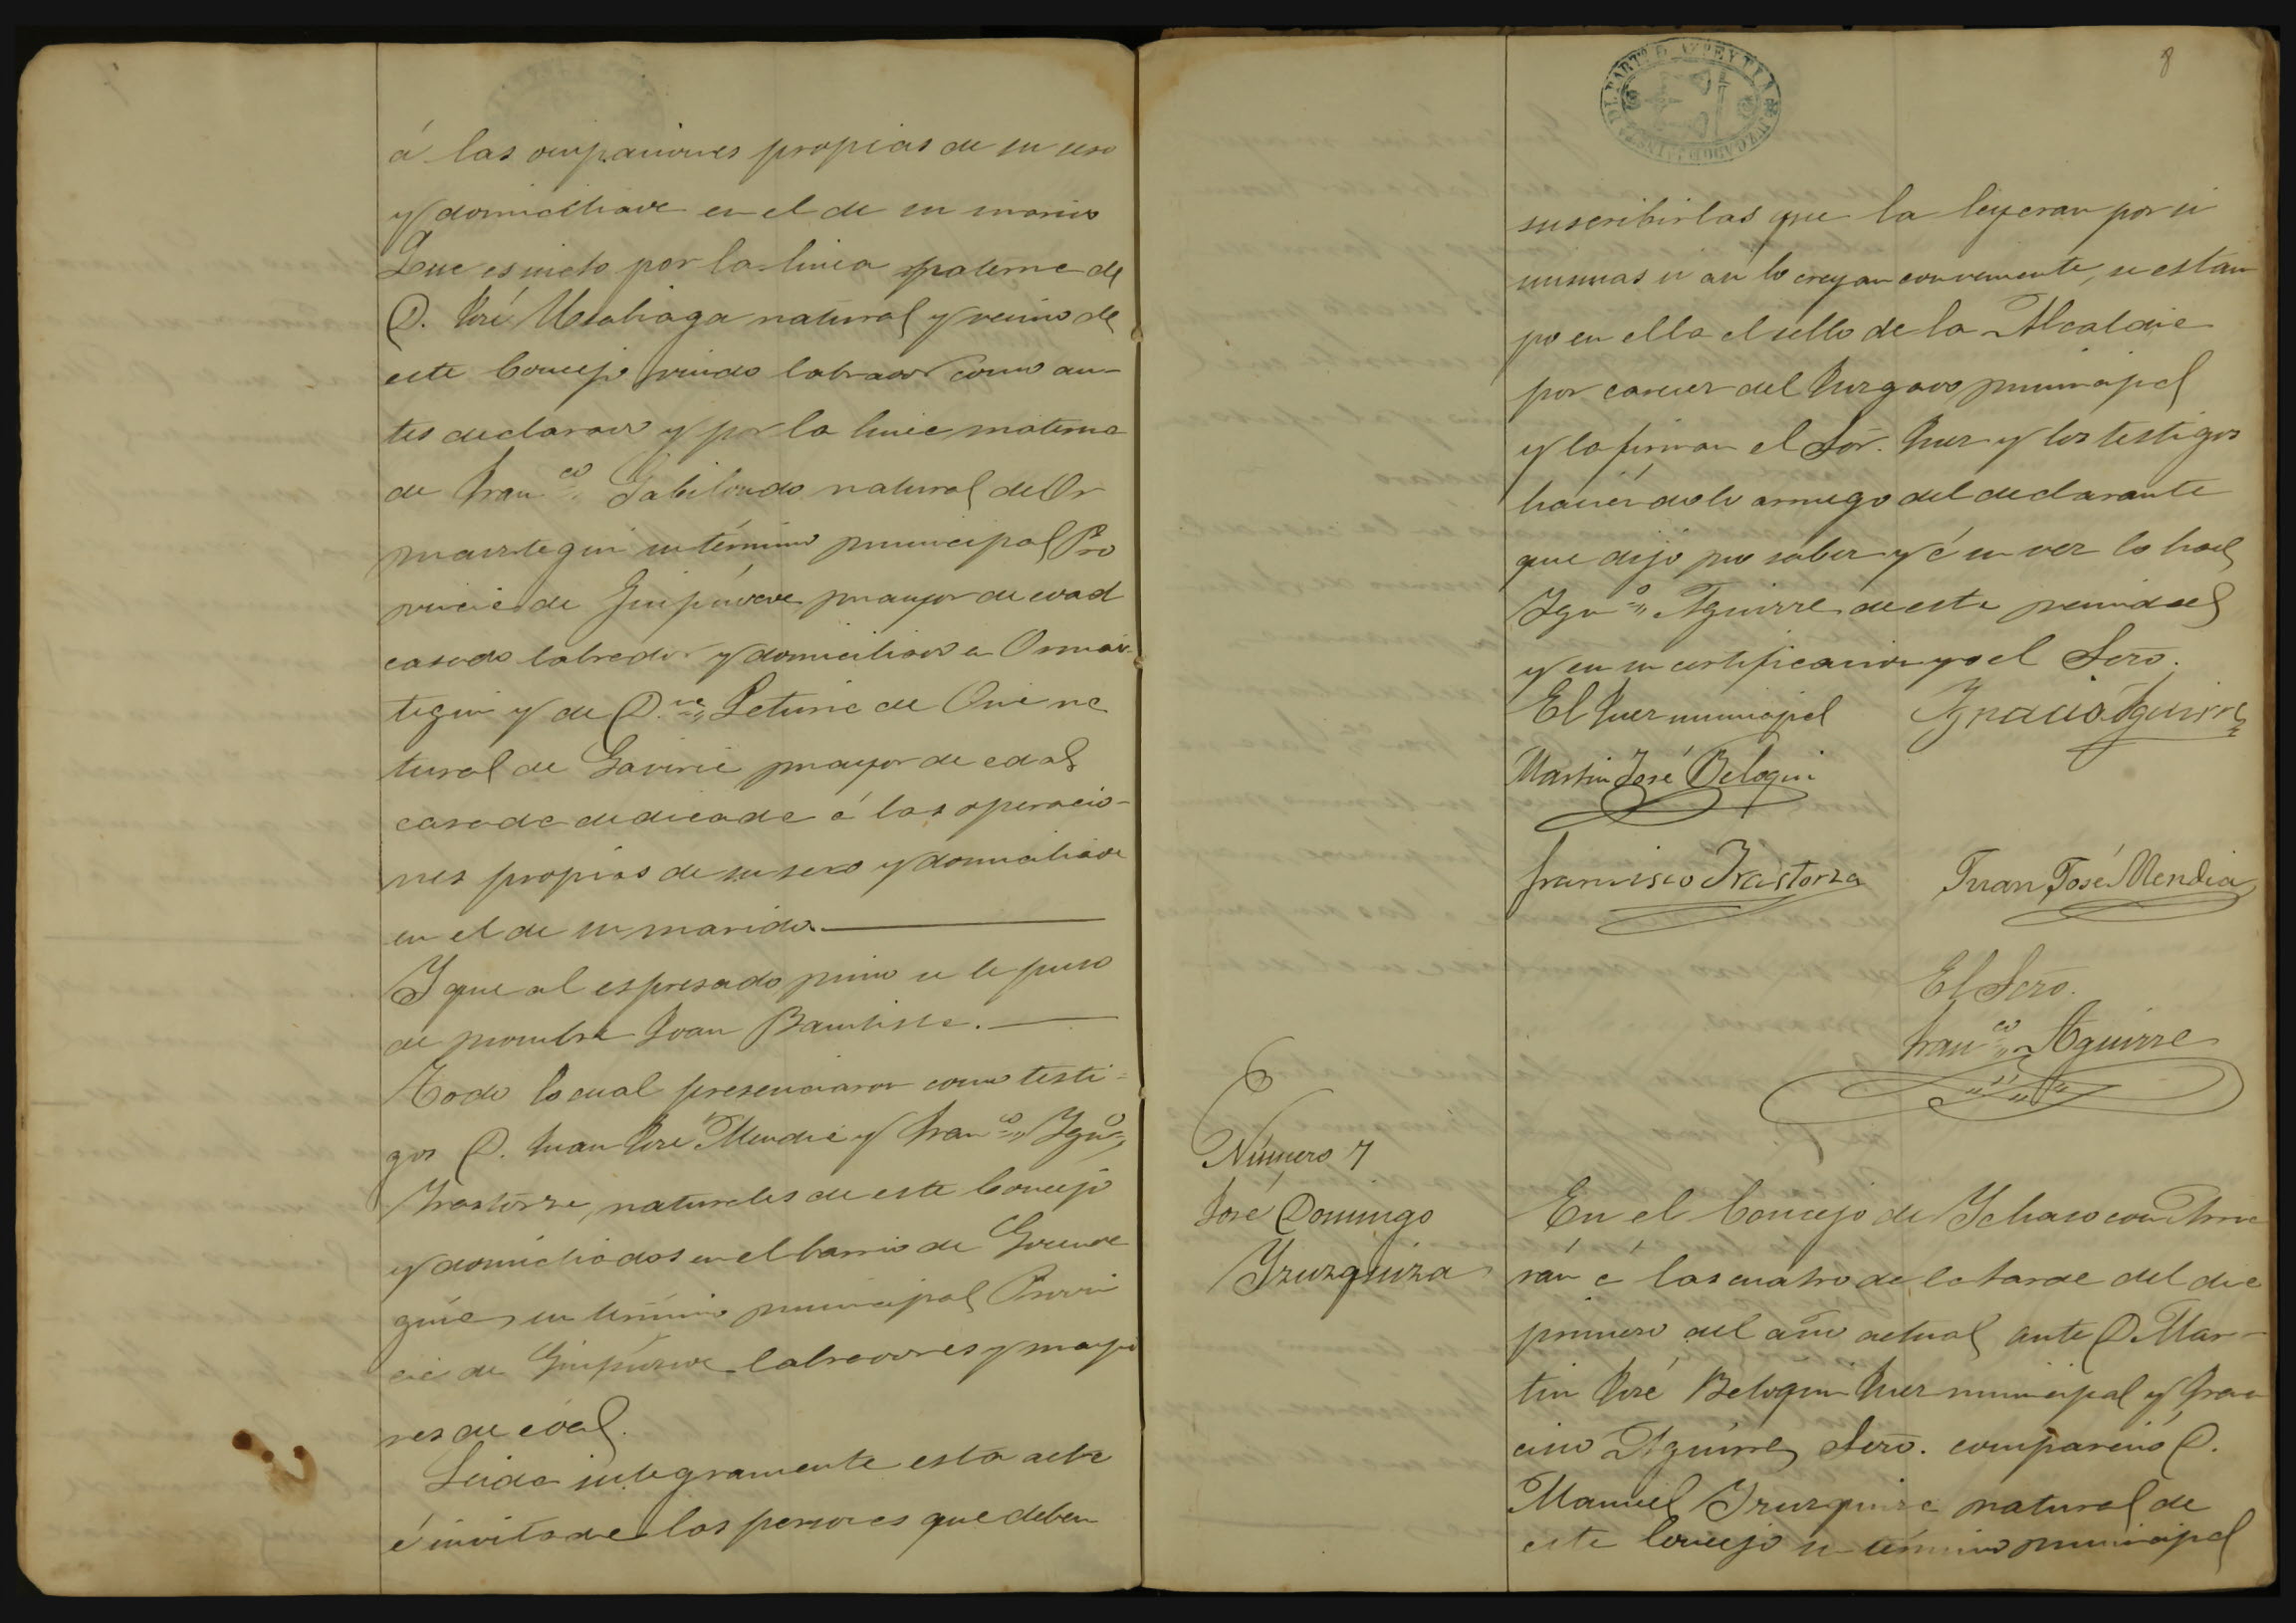 á las ocupaciones propias de su sexo
y domiciliada en el de su marido
Que es nieto por la linea paterna de
D. José Usabiaga natural y vecino de
este Concejo viudo labrador como an-
tes declarado y por la linea materna
de Fran.co Gabilondo natural de Or
maiztegui su término municipal Pro
vincia de Guipúzcoa mayor de edad
casado labrador y domiciliado en Ormaiz
tegui y de D.na Leturia de Oria na
tural de Gaviria mayor de edad
casada dedicada á las operacio-
nes propias de su sexo y domiciliada
en el de su marido.
Y que al espresado niño se le puso
de nombre Juan Bautista.
Todo lo cual presenciaron como testi-
gos D. Juan José Mendia y Fran.co Ign.o
Irastorza, naturales de este Concejo
y domiciliados en el barrio de
su término municipal Provin
cia de Guipúzcoa labradores y mayo
res de edad.
Leida integramente esta acta
é invitadas las personas que deben
8
PARTº D. AZPEYTIA JUZGADO DE INSTA DEL
suscribirlas que la leyeran por si
mismas si asi lo creyan conveniente, se estam
po en ella el sello de la Alcaldia
por carecer del Juzgado municipal
y la firman el Sor. Juez y los testigos
haciendolo a ruego del declarante
que dijo no saber y á su vez lo hace
Ign.o Aguirre de este vecindad
y en su certificacion yo el Scro.
El Juez municipal Ignacio Aguirre
Martin José Beloqui
Francisco Irastorza Juan José Mendia
El Scro.
Fran.co Aguirre
Número 7
José Domingo
Yzurquiza
En el Concejo de Ichaso con Arria
rán á las cuatro de la tarde del dia
primero del año actual ante D. Mar-
tin José Beloqui Juez municipal y Fran
cisco Aguirre Scro. compareció D.
Manuel Yzurquiza natural de
este Concejo su término municipal